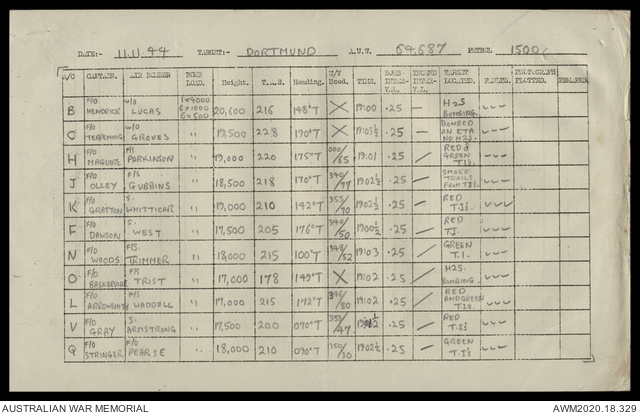 DATE:- 11.11.44 TARGET:- DORTMUND A.U.W. 64687 PETROL 1500
A/C CAPTAIN. AIR BOMBER BOMB LOAD. Height. T.A.S. Heading. W/V Used. TIME. BOMB INTER- VAL. INTER- VAL. TARGET LOCATED. PHOTOGRAPH PLOTTED. REMARKS
B F/O HENDRICK W/O LUCAS 1x4000 6x1000 6x500 20,600 216 148°T X 19.00 .25 — H2S BOMBING.
C F/O W/O GROVES " 19,500 228 190°T X 19.01½ .25 — BOMBED ON ETA NO H2S.
H F/O MAGUIRE F/S PARKINSON " 19,000 220 175°T 000/65 19.01 .25 / RED & GREEN T.I's
J F/O OLLEY F/S GUBBINS " 18,500 218 170°T 19.02½ .25 / SMOKE TRAILS FROM T.I's
K F/O GRATTON S. WHITTICAR " 19,000 210 142°T 355/70 19.02½ .25 / RED T.I's
F F/O DAWSON S. WEST " 17,500 205 176°T 340/50 19.00½ .25 / RED T.I.
N F/O WOODS F/S. TRIMMER " 18,000 215 100°T 348/52 19.03 .25 / GREEN T.I.
O F/O F/S TRIST " 17,000 178 149°T X 19.02 .25 / H2S. BOMBING
L F/O F/S WADDELL " 17,000 215 172°T 19.02 .25 / RED AND GREEN T.I's
V F/O GRAY S. ARMSTRONG " 17,500 200 070°T .25 / RED T.I's
Q F/O STRINGER F/O PEARSE " 18,000 210 090°T 350/30 19.02½ .25 / GREEN T.I's
AUSTRALIAN WAR MEMORIAL AWM2020.18.329